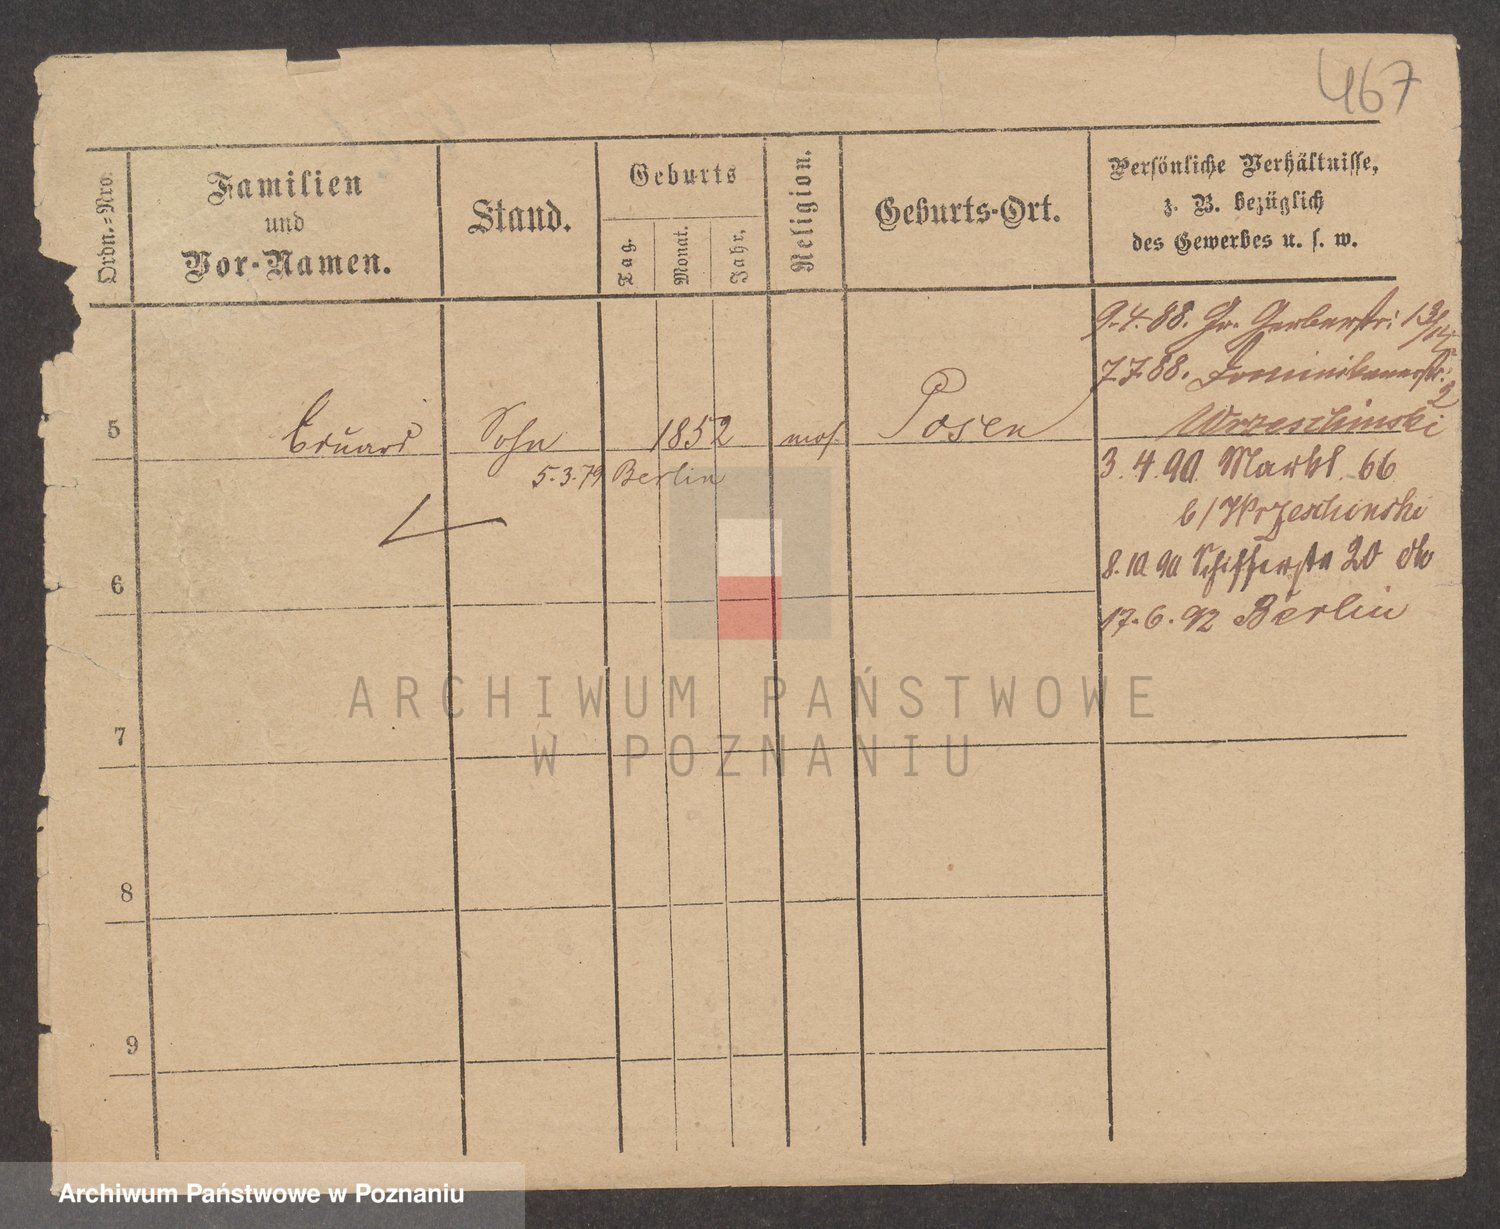 467
Ordn.-Nro.
Familien
und
Vor-Namen.
Stand.
Geburts
Tag.
Monat.
Jahr.
Religion.
Geburts-Ort.
Persönliche Verhältnisse,
z. B. bezüglich
des Gewerbes u. s. w.
9.4.88. Gr. Gerberstr: 13/14
7.7.88. Dominikanerstr: 2
Wrzeschinski
5 Eduard Sohn 1852 mos. Posen
5.3.79 Berlin
3.4.90 Markt 66
b/Wrzeschinski
8.10.90 Schifferstr 20 do
17.6.92 Berlin
6
7
8
9
ARCHIWUM PAŃSTWOWE
W POZNANIU
Archiwum Państwowe w Poznaniu